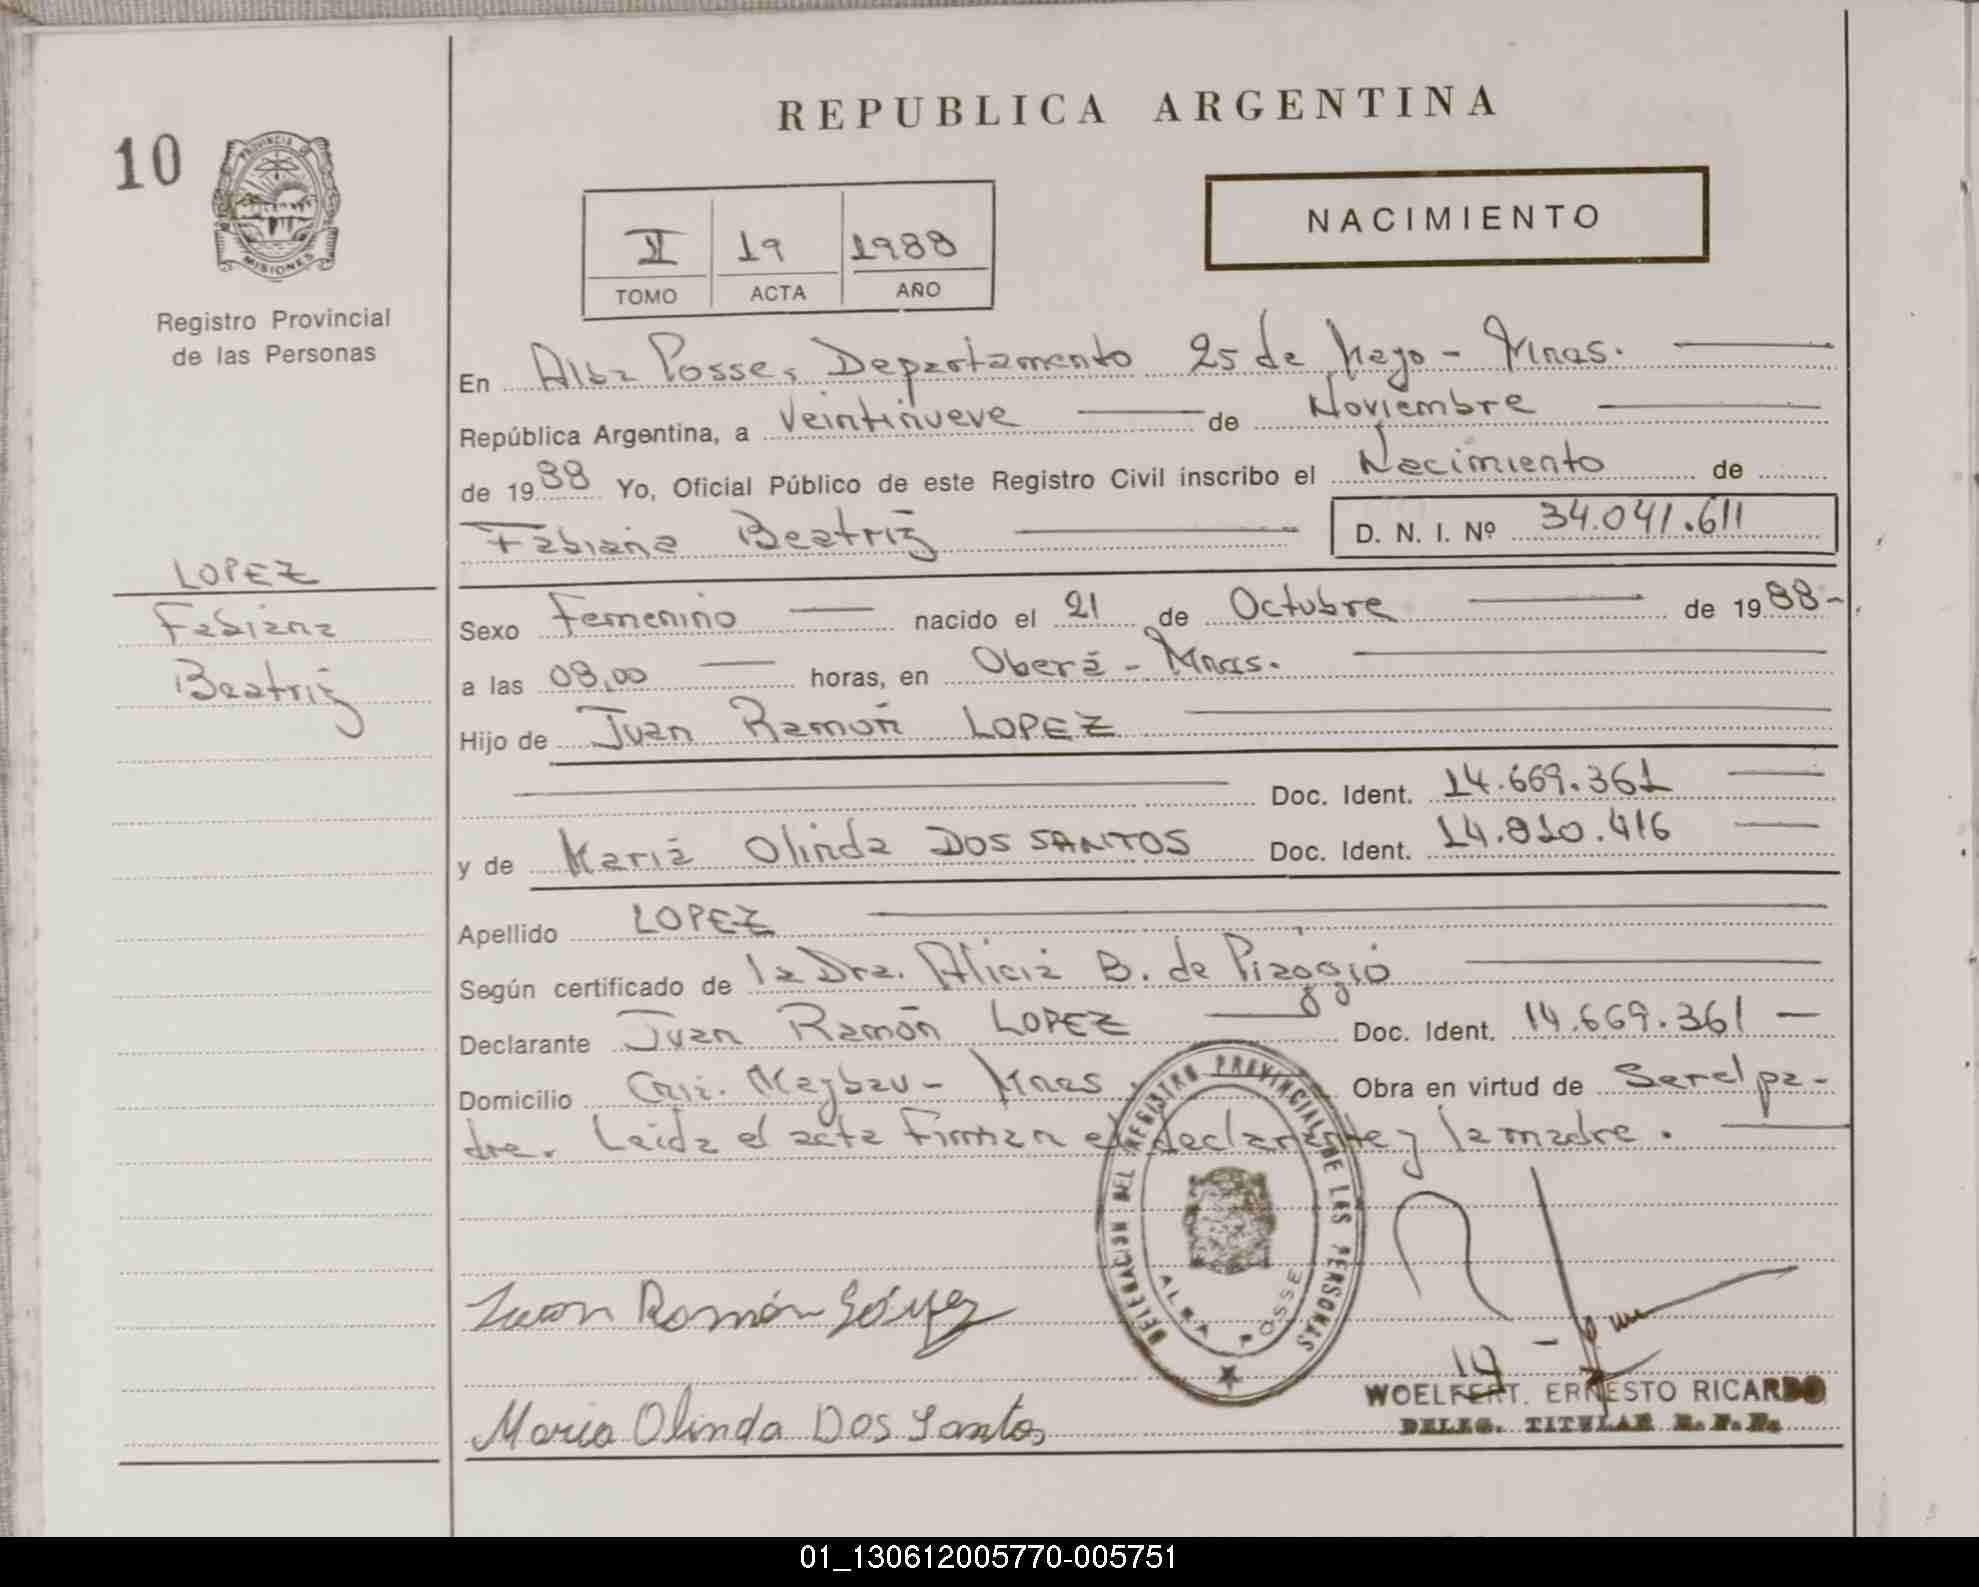 REPUBLICA ARGENTINA
10
PROVINCIA DE
MISIONES
Registro Provincial
de las Personas
NACIMIENTO
II 19 1988
TOMO ACTA AÑO
En Alba Posse, Departamento 25 de Mayo - Mnas.
República Argentina, a Veintinueve de Noviembre
de 1988 Yo, Oficial Público de este Registro Civil inscribo el Nacimiento de
Fabiana Beatriz D. N. I. Nº 34.041.611
LOPEZ
Fabiana
Beatriz
Sexo Femenino nacido el 21 de Octubre de 1988-
a las 08,00 horas, en Oberá - Mnas.
Hijo de Juan Ramón LOPEZ
Doc. Ident. 14.669.361
y de María Olinda DOS SANTOS Doc. Ident. 14.810.416
Apellido LOPEZ
Según certificado de la Dra. Alicia B. de
Declarante Juan Ramón LOPEZ Doc. Ident. 14.669.361
Domicilio Mnas. Obra en virtud de Ser el pa-
dre. Leida el acta Firman el declarante y la madre.
DELEGACION DEL REGISTRO PROVINCIAL DE LAS PERSONAS
ALBA POSSE
Juan Ramón
Maria Olinda Dos Santos
WOELFERT. ERNESTO RICARDO
DELEG. TITULAR R. P. P.
01_130612005770-005751